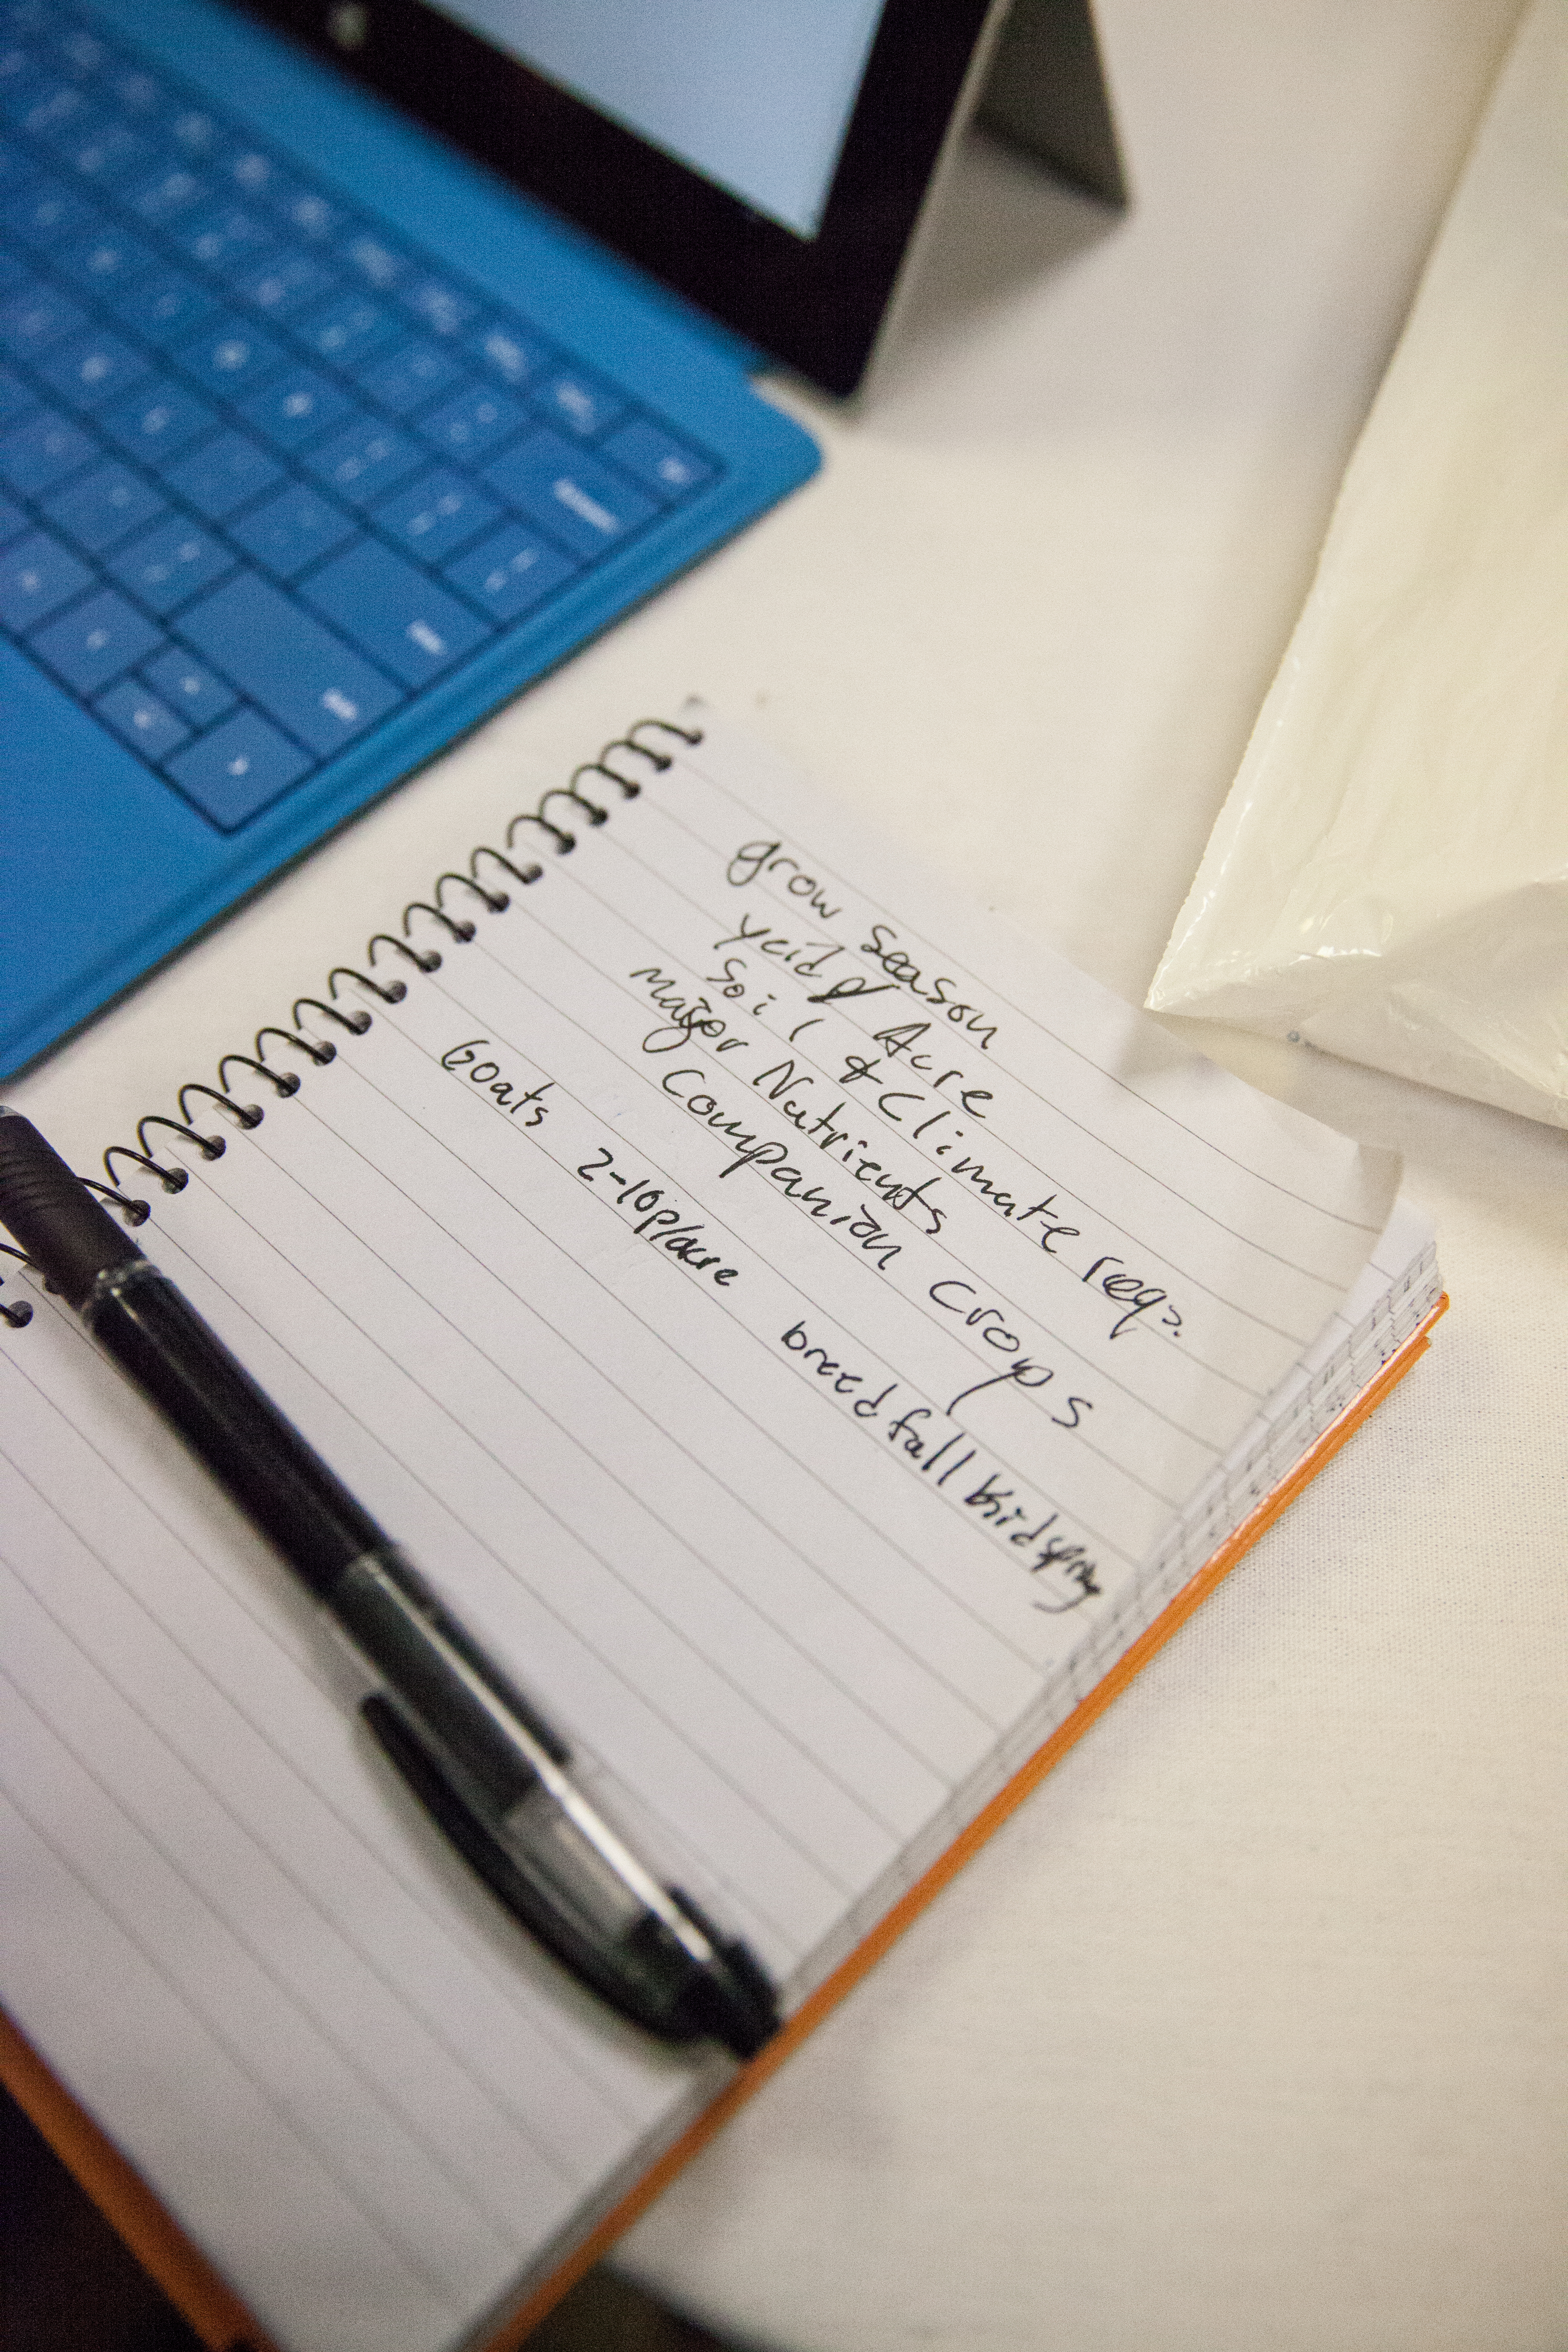 grow season
yeild/ Acre
Soil & Climate reqs.
major Nutrients
Companion Crops
Goats 2-10p/acre breed fall kid spring